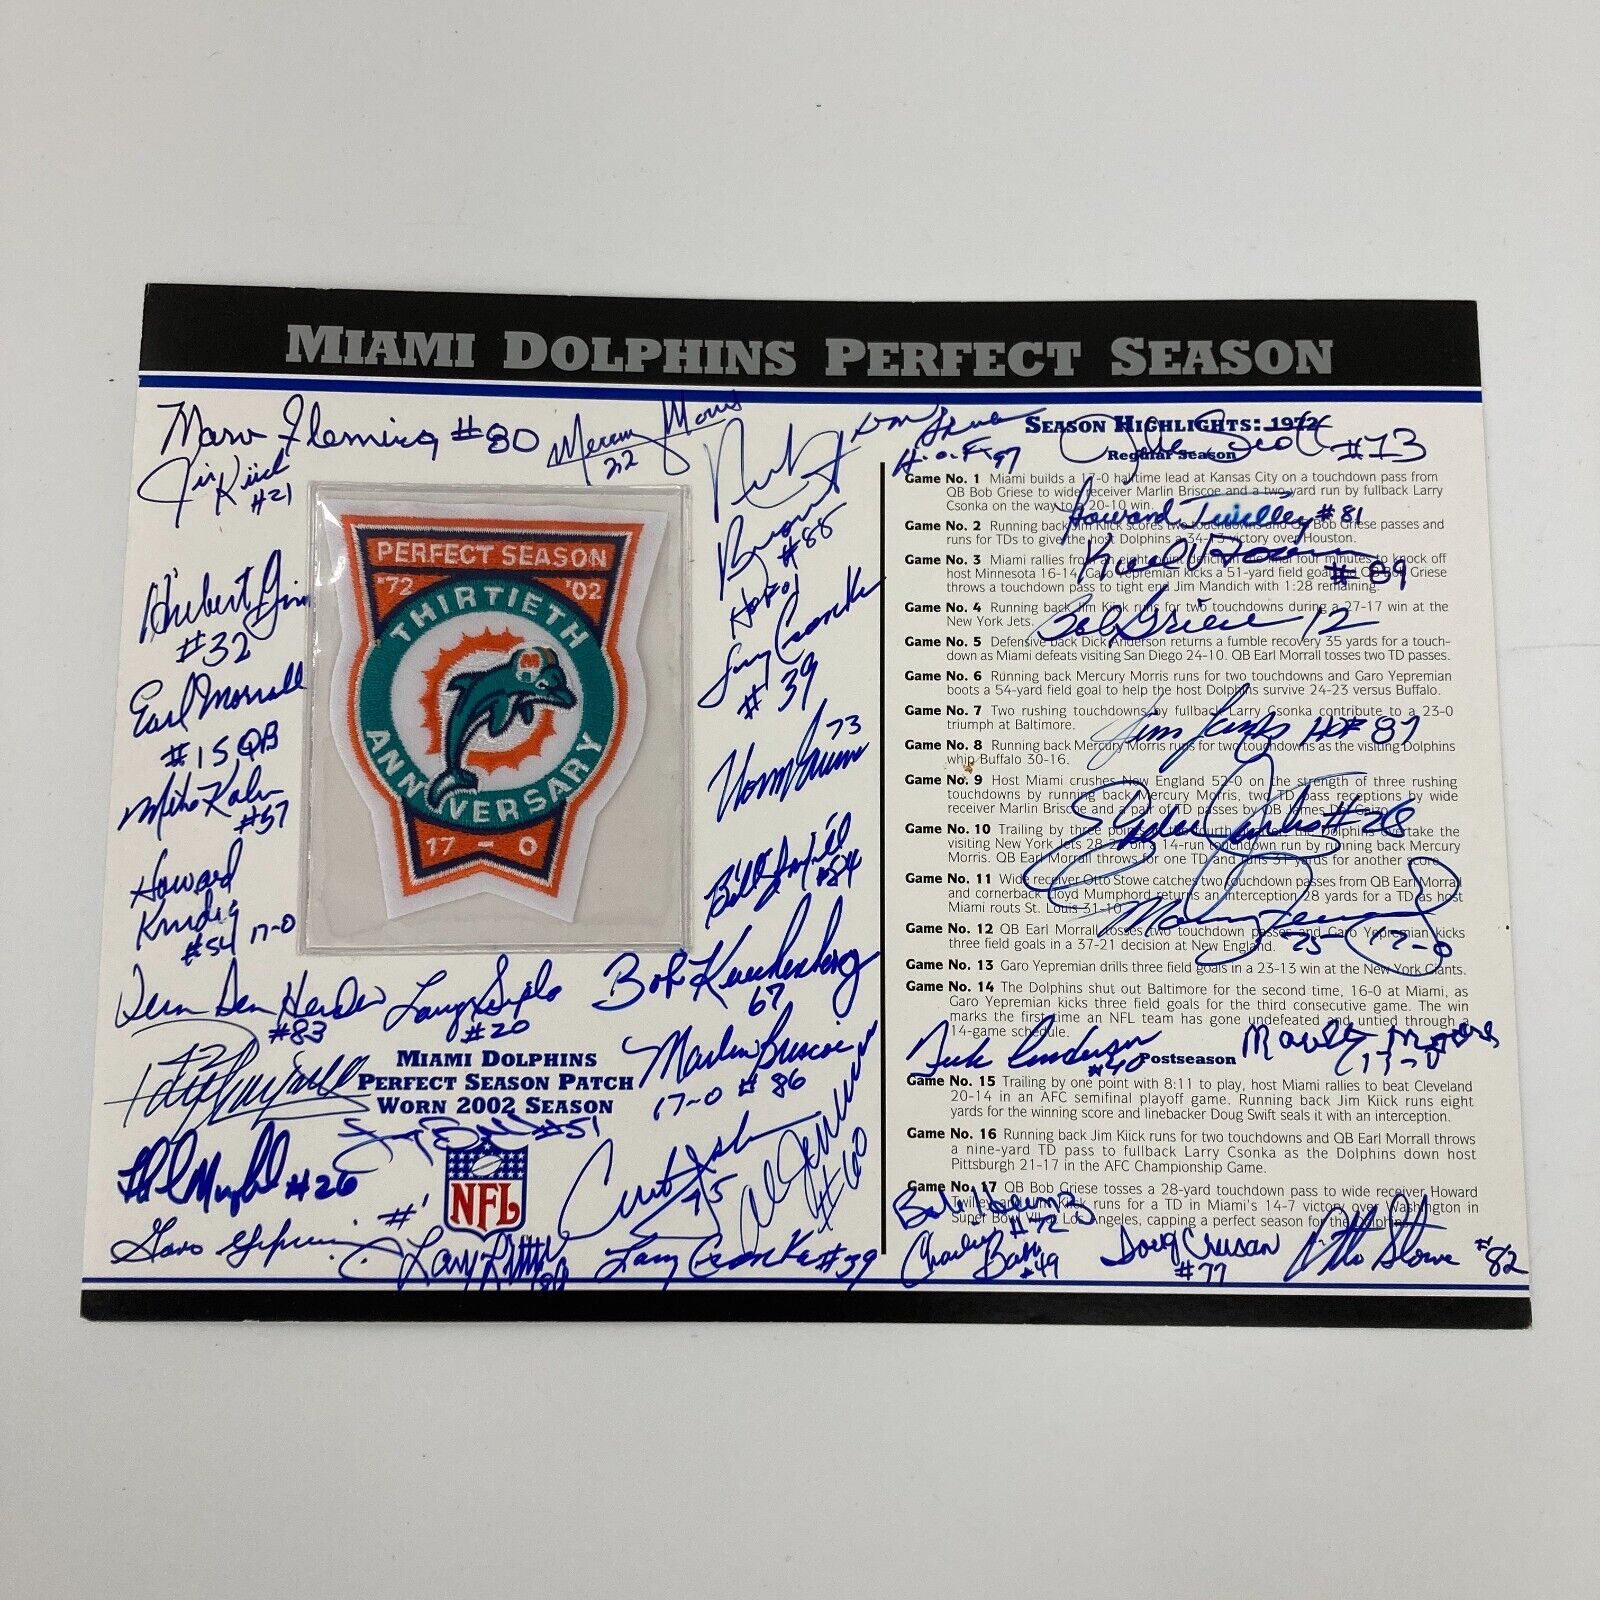 MIAMI DOLPHINS PERFECT SEASON
Marv Fleming #80
Jim Kiick
#21
Mercury Morris
22
Hubert Gin
#32
Earl Morrall
#15 QB
Mike Kolen
#57
Howard
Kindig
#54 17-0
Vern Den Herder
#83
Larry Seiple
#20
PERFECT SEASON
'72 '02
THIRTIETH
ANNIVERSARY
17 - 0
Nick
Buoniconti
#85
HOF 01
Larry Csonka
#39
73
Norm Evans
Bill
#84
Bob Kuechenberg
67
Marlin Briscoe
17-0 #86
MIAMI DOLPHINS
PERFECT SEASON PATCH
WORN 2002 SEASON
#51
#26
Garo Yepremian #1
NFL
Larry Little
Curt
75
Al Jenkins
#60
Larry Csonka #39
Don Shula
H.O.F. 97
SEASON HIGHLIGHTS: 1972
Jake Scott #13
Regular Season
Game No. 1 Miami builds a 17-0 halftime lead at Kansas City on a touchdown pass from
QB Bob Griese to wide receiver Marlin Briscoe and a two-yard run by fullback Larry
Csonka on the way to a 20-10 win.
Howard Twilley #81
Game No. 2 Running back Jim Kiick scores two touchdowns and QB Bob Griese passes and
runs for TDs to give the host Dolphins a 34-13 victory over Houston.
#89
Game No. 3 Miami rallies from an eight point deficit final four minutes to knock off
host Minnesota 16-14. Garo Yepremian kicks a 51-yard field goal QB Bob Griese
throws a touchdown pass to tight end Jim Mandich with 1:28 remaining.
Game No. 4 Running back Jim Kiick runs for two touchdowns during a 27-17 win at the
New York Jets.
Bob Griese 12
Game No. 5 Defensive back Dick Anderson returns a fumble recovery 35 yards for a touch-
down as Miami defeats visiting San Diego 24-10. QB Earl Morrall tosses two TD passes.
Game No. 6 Running back Mercury Morris runs for two touchdowns and Garo Yepremian
boots a 54-yard field goal to help the host Dolphins survive 24-23 versus Buffalo.
Game No. 7 Two rushing touchdowns by fullback Larry Csonka contribute to a 23-0
triumph at Baltimore.
Jim Langer HOF 87
Game No. 8 Running back Mercury Morris runs for two touchdowns as the visiting Dolphins
whip Buffalo 30-16.
Game No. 9 Host Miami crushes New England 52-0 on the strength of three rushing
touchdowns by running back Mercury Morris, two TD pass receptions by wide
receiver Marlin Briscoe and a pair of TD passes by QB James Del Gaizo.
Game No. 10 Trailing by three points in the fourth quarter, the Dolphins overtake the
visiting New York Jets 28-24 on a 14-run touchdown run by running back Mercury
Morris. QB Earl Morrall throws for one TD and runs 31 yards for another score.
Game No. 11 Wide receiver Otto Stowe catches two touchdown passes from QB Earl Morrall
and cornerback Lloyd Mumphord returns an interception 28 yards for a TD as host
Miami routs St. Louis 31-10.
Game No. 12 QB Earl Morrall tosses two touchdown passes and Garo Yepremian kicks
three field goals in a 37-21 decision at New England.
75 17-0
Game No. 13 Garo Yepremian drills three field goals in a 23-13 win at the New York Giants.
Game No. 14 The Dolphins shut out Baltimore for the second time, 16-0 at Miami, as
Garo Yepremian kicks three field goals for the third consecutive game. The win
marks the first time an NFL team has gone undefeated and untied through a
14-game schedule.
Dick Anderson
#40
Postseason
Maulty Moore
(17-0)
Game No. 15 Trailing by one point with 8:11 to play, host Miami rallies to beat Cleveland
20-14 in an AFC semifinal playoff game. Running back Jim Kiick runs eight
yards for the winning score and linebacker Doug Swift seals it with an interception.
Game No. 16 Running back Jim Kiick runs for two touchdowns and QB Earl Morrall throws
a nine-yard TD pass to fullback Larry Csonka as the Dolphins down host
Pittsburgh 21-17 in the AFC Championship Game.
Game No. 17 QB Bob Griese tosses a 28-yard touchdown pass to wide receiver Howard
Twilley and Jim Kiick runs for a TD in Miami's 14-7 victory over Washington in
Super Bowl VII at Los Angeles, capping a perfect season for the Dolphins.
Bob Heinz
#72
Charlie
Babb
#49
Doug Crusan
#77
Otto Stowe #82